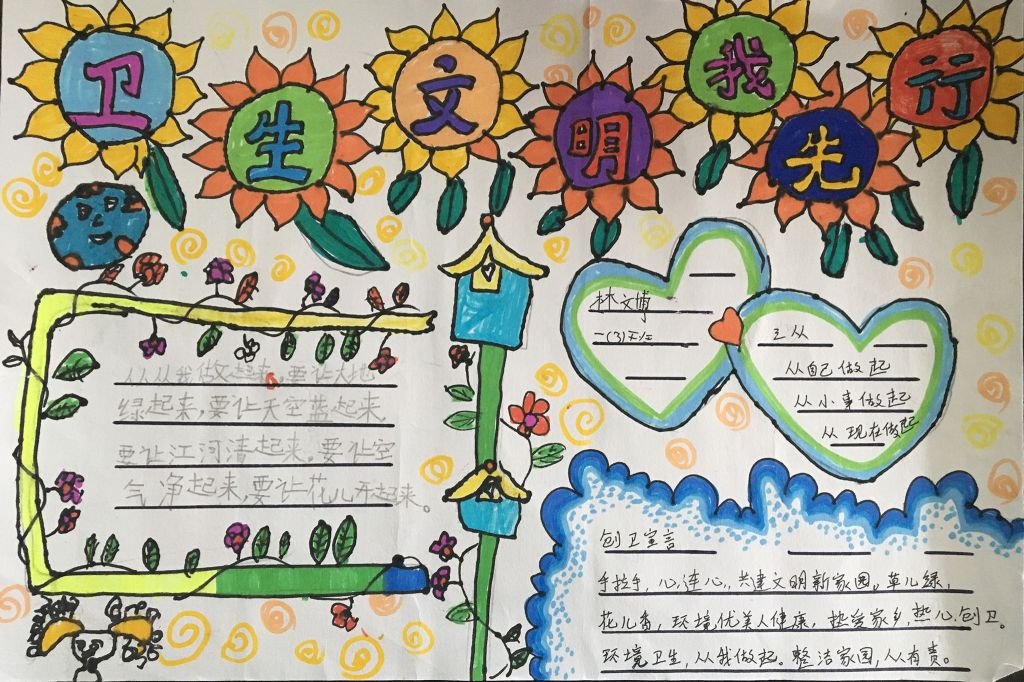 卫生文明我先行
从从我做起来,要让大地
绿起来,要让天空蓝起来
要让江河清起来,要让空
气净起来,要让花儿开起来。
林文博
一(3)班
三从
从自己做起
从小事做起
从现在做起
创卫宣言
手拉手,心连心,共建文明新家园。草儿绿,
花儿香,环境优美人健康,热爱家乡,热心创卫。
环境卫生,从我做起。整洁家园,从有责。